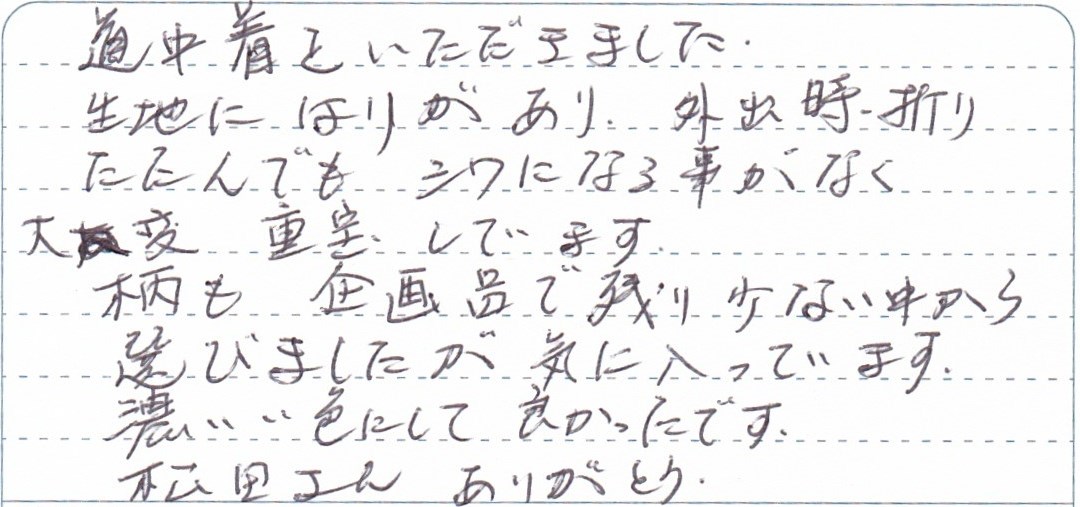 道中着といただきました.
生地にはりがあり. 外出時.折り
たたんでも シワになる事がなく
大変 重宝.しています.
柄も 企画品で残り少ない中から
選びましたが気に入っています.
濃いい色にして良かったです.
松田さん ありがとう.